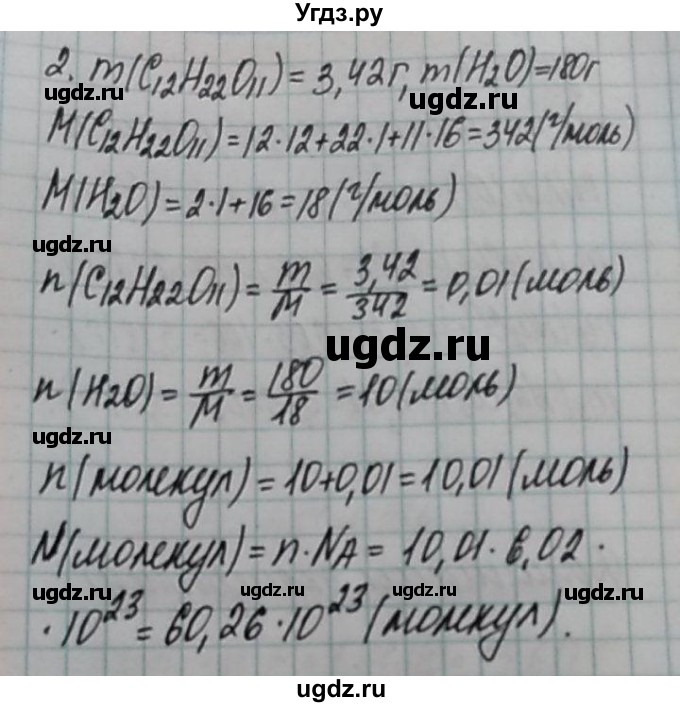 Угдз.ру
2. m(C₁₂H₂₂O₁₁) = 3,42г, m(H₂O)=180г
ugdz.ru
M(C₁₂H₂₂O₁₁)=12·12+22·1+11·16=342(г/моль)
M(H₂O)=2·1+16=18(г/моль)
ugdz.ru
n(C₁₂H₂₂O₁₁)= m/M = 3,42/342 = 0,01(моль)
ugdz.ru
ugdz.ru
n(H₂O)= m/M = 180/18 = 10(моль)
ugdz.ru
n(молекул)=10+0,01=10,01(моль)
N(молекул)=n·NA= 10,01·6,02·
ugdz.ru ugdz.ru
·10²³=60,26·10²³(молекул).
ugdz.ru
ugdz.ru